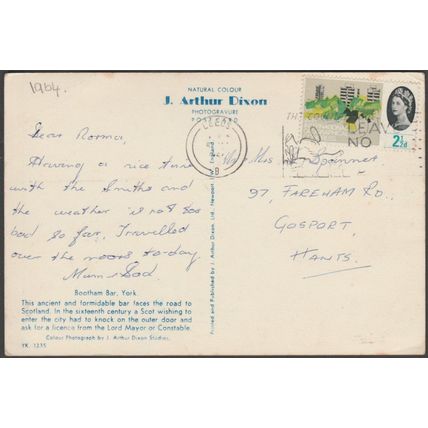 1964.
NATURAL COLOUR
J. Arthur Dixon
PHOTOGRAVURE
POSTCARD
Dear Rorma,
Having a nice time
with the Smiths and
the weather is not too
bad so far. Travelled
over the moors to-day.
Mum & Dad.
Bootham Bar, York.
This ancient and formidable bar faces the road to
Scotland. In the sixteenth century a Scot wishing to
enter the city had to knock on the outer door and
ask for a licence from the Lord Mayor or Constable.
Colour Photograph by J. Arthur Dixon Studios.
YK. 1235
Printed and Published by J. Arthur Dixon Ltd., Newport, England.
LEEDS
B
THE
LEAVE
NO
2½d
Miss
97, FAREHAM RD.,
GOSPORT,
HANTS.